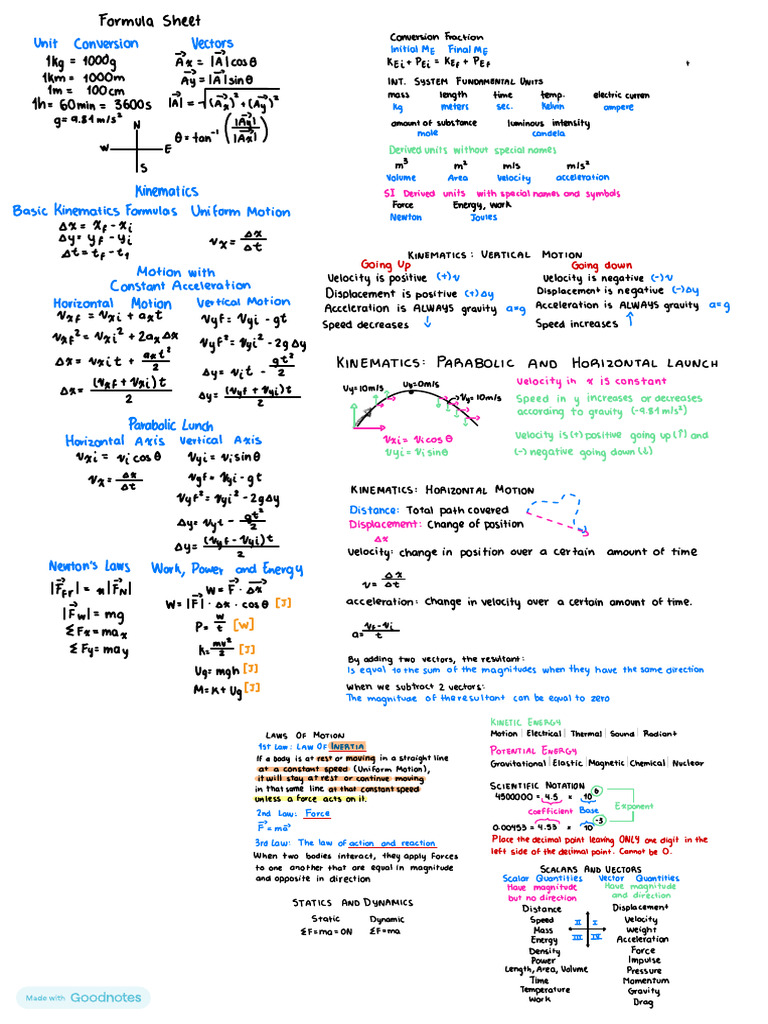 Formula Sheet
Unit Conversion
1kg = 1000g
1km = 1000m
1m = 100cm
1h = 60min = 3600s
g = 9.81 m/s²
N
W E
S
Vectors
A⃗x = |A⃗| cos θ
A⃗y = |A⃗| sin θ
|A⃗| = √(A⃗x)² + (A⃗y)²
θ = tan⁻¹ (|A⃗y| / |A⃗x|)
Kinematics
Basic Kinematics Formulas
Δx = xf - xi
Δy = yf - yi
Δt = tf - t1
Uniform Motion
vx = Δx/Δt
Motion with
Constant Acceleration
Horizontal Motion
vxf = vxi + axt
vxf² = vxi² + 2axΔx
Δx = vxit + axt²/2
Δx = (vxf + vxi)t/2
Vertical Motion
vyf = vyi - gt
vyf² = vyi² - 2gΔy
Δy = vit - gt²/2
Δy = (vyf + vyi)t/2
Parabolic Lunch
Horizontal Axis
vxi = vi cos θ
vx = Δx/Δt
Vertical Axis
vyi = vi sin θ
vyf = vyi - gt
vyf² = vyi² - 2gΔy
Δy = vyt - gt²/2
Δy = (vyf - vyi)t/2
Newton's Laws
|F⃗Fr| = x|F⃗N|
|F⃗w| = mg
ΣFx = max
ΣFy = may
Work, Power and Energy
W = F⃗ · Δx⃗
W = |F⃗| · Δx · cos θ [J]
P = w/t [W]
k = mv²/2 [J]
Ug = mgh [J]
M = k + Ug [J]
Conversion Fraction
Initial ME Final ME
KEi + PEi = KEf + PEf
INT. SYSTEM FUNDAMENTAL UNITS
mass length time temp. electric curren
kg meters sec. Kelvin ampere
amount of substance luminous intensity
mole candela
Derived units without special names
m³ m² m/s m/s²
Volume Area Velocity acceleration
SI Derived units with special names and symbols
Force Energy, work
Newton Joules
KINEMATICS: VERTICAL MOTION
Going Up
Velocity is positive (+)v
Displacement is positive (+)Δy
Acceleration is ALWAYS gravity a=g
Speed decreases ↓
Going down
Velocity is negative (-)v
Displacement is negative (-)Δy
Acceleration is ALWAYS gravity a=g
Speed increases ↑
KINEMATICS: PARABOLIC AND HORIZONTAL LAUNCH
Vy=10m/s Vy=0m/s Vy=10m/s
vxi = vi cos θ
vyi = vi sin θ
Velocity in x is constant
Speed in y increases or decreases
according to gravity (-9.81 m/s²)
Velocity is (+) positive going up (↑) and
(-) negative going down (↓)
KINEMATICS: HORIZONTAL MOTION
Distance: Total path covered
Displacement: Change of position
Δx
Velocity: change in position over a certain amount of time
v = Δx/Δt
acceleration: change in velocity over a certain amount of time.
a = vf - vi/t
By adding two vectors, the resultant:
Is equal to the sum of the magnitudes when they have the same direction
When we subtract 2 vectors:
The magnitude of the resultant can be equal to zero
LAWS OF MOTION
1st Law: LAW OF INERTIA
If a body is at rest or moving in a straight line
at a constant speed (Uniform Motion),
it will stay at rest or continue moving
in that same line at that constant speed
unless a force acts on it.
2nd Law: Force
F⃗ = ma⃗
3rd Law: The law of action and reaction
When two bodies interact, they apply forces
to one another that are equal in magnitude
and opposite in direction
STATICS AND DYNAMICS
Static Dynamic
ΣF=ma=0N ΣF=ma
KINETIC ENERGY
Motion | Electrical | Thermal | Sound | Radiant
POTENTIAL ENERGY
Gravitational | Elastic | Magnetic | Chemical | Nuclear
SCIENTIFIC NOTATION
4500000 = 4.5 x 10⁶
coefficient Base Exponent
0.00453 = 4.53 x 10⁻³
Place the decimal point leaving ONLY one digit in the
left side of the decimal point. Cannot be 0.
SCALARS AND VECTORS
Scalar Quantities Vector Quantities
Have magnitude Have magnitude
but no direction and direction
Distance Displacement
Speed Velocity
Mass Weight
Energy Acceleration
Density Force
Power Impulse
Length, Area, Volume Pressure
Time Momentum
Temperature Gravity
Work Drag
II I
III IV
Made with Goodnotes